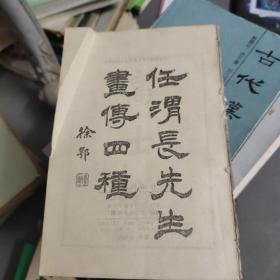 任渭長先生
畫傳四種
徐鄂
古代漢